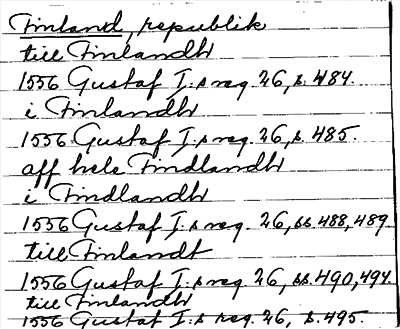 Finland, republik
till Finlandh
1556 Gustaf I:s reg. 26, s. 484.
i Finlandh
1556 Gustaf I:s reg. 26, s. 485.
aff hele Findlandh
i Findlandh
1556 Gustaf I:s reg. 26, ss. 488, 489.
till Finlandt
1556 Gustaf I:s reg. 26, ss. 490, 494.
till Finlandh
1556 Gustaf I:s reg. 26, s. 495.